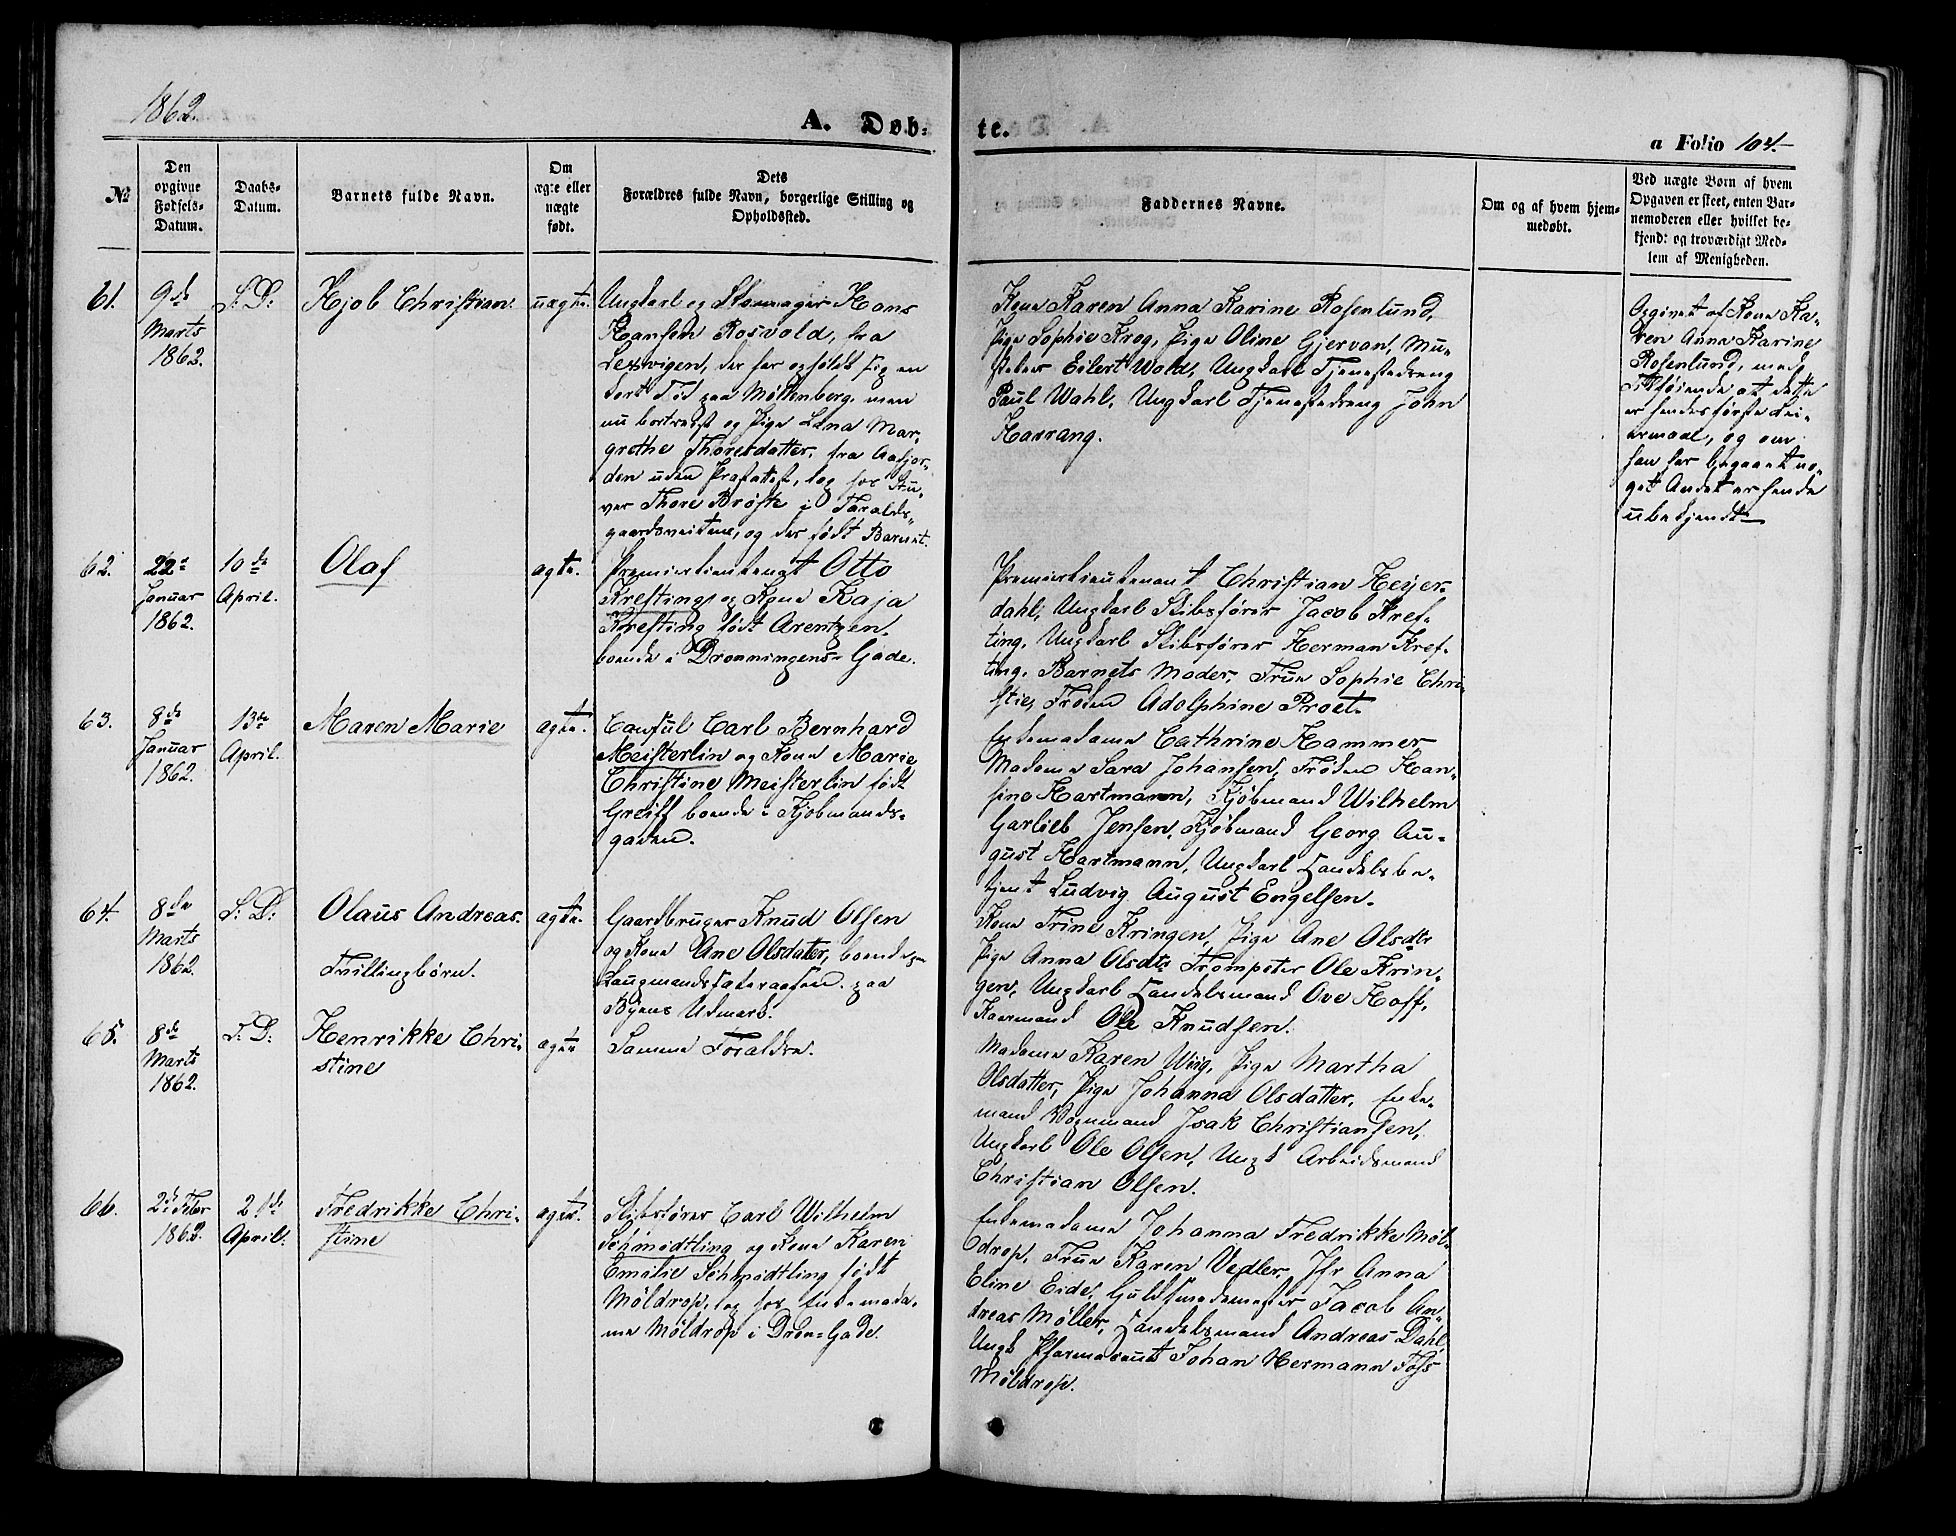 1862.
A. Døb-
te.
a Folio 104.-
№
Den
opgivne
Fødsels-
Datum.
Daabs-
Datum.
Barnets fulde Navn.
Om
ægte eller
uægte
født.
Dets
Forældres fulde Navn, borgerlige Stilling og
Opholdssted.
Faddernes Navne.
Om og af hvem hjem-
medøbt.
Ved uægte Børn af hvem
Opgaven er skeet, enten Bar-
nemoderen eller hvilket be-
kjendt og troværdigt Med-
lem af Menigheden.
61.
9de
Marts
1862.
S: D:
Hjob Christian.
uægte.
Ungkarl og Skomager Hans
Hansen Rosvold, fra
Lexvigen, der har opholdt sig en
kort Tid paa Møllenberg men
nu bortreist og Pige Lena Mar-
grethe Thoresdatter, fra Aafjor-
den uden Præsteattest, log hos Stu-
ver Thore Brøste i Taralds-
gaardsveitene, og der født Barnet.
Kone Karen Anna Karine Rosenlund,
Pige Sophie Krog, Pige Oline Gjervan, Mu-
sketer Eilert Wold, Ungkarl Tjenestedreng
Paul Wahl, Ungkarl Tjenestedreng John
Harrang.
Opgivet af Kone Ka-
ren Anna Karine
Rosenlund, med
Tilføiende at dette
er hendes første Lei-
ermaal, og om
han har begaaet no-
get Andet er hende
ubekjendt
62.
22de
Januar
1862.
10de
April.
Olaf
ægte.
Premierlieutenant Otto
Krefting og Kone Kaja
Krefting født Arentzen.
boende i Dronningens-Gade.
Premierlieutenant Christian Heyer-
dahl, Ungkarl Skibsfører Jacob Kref-
ting, Ungkarl Skibsfører Herman Kref-
ting, Barnets Moder, Frue Sophie Chri-
stie, Frøken Adolphine Proet.
63.
8de
Januar
1862.
13de
April.
Maren Marie
ægte.
Consul Carl Bernhard
Meisterlin og Kone Marie
Christine Meisterlin født
Greiff boende i Kjøbmands-
gaden.
Enkemadame Cathrine Hammer
Madame Sara Johansen, Frøken Han-
sine Hartmann, Kjøbmand Wilhelm
Garlieb Jensen, Kjøbmand Georg Au-
gust Hartmann, Ungkarl Handelsbe-
tjent Ludvig August Engelsen.
64.
8de
Marts
1862.
S: D:
Olaus Andreas.
Tvillingbørn.
ægte.
Gaardbruger Knud Olsen
og Kone Ane Olsdatter, boende paa
Laugmandssæteraasen paa
Byens Udmark.
Kone Trine Kringen, Pige Ane Olsdtr
Pige Anna Olsdtr Trompeter Ole Krin-
gen, Ungkarl Handelsmand Ove Hoff,
Kaarmand Ole Knudsen.
65.
8de
Marts
1862.
S. D:
Henrikke Chri-
stine
ægte
Samme Forældre.
Madame Karen Wiig, Pige Martha
Olsdatter, Pige Johanna Olsdatter, Enke-
mand Vognmand Isak Christiansen,
Ungkarl Ole Olsen, Ungk Arbeidsmand
Christian Olsen.
66.
2de Febr
1862.
21de
April.
Fredrikke Chri-
stine
ægte.
Skibsfører Carl Wilhelm
Schmidtling og Kone Karen
Emilie Schmidtling født
Møldrop, log hos Enkemada-
me Møldrop i Dron-Gade.
Enkemadame Johanna Fredrikke Møl-
drop, Frue Karen Vedler, Jfr Anna
Eline Eide, Guldsmedmester Jacob An-
dreas Møller, Handelsmand Andreas Dahl,
Ungk Pharmaceut Johan Hermann Foss
Møldrop.